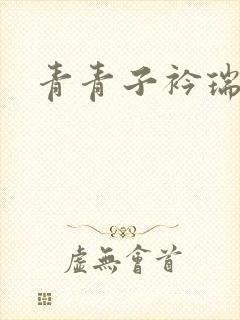 青青子衿瑞
虚無會首